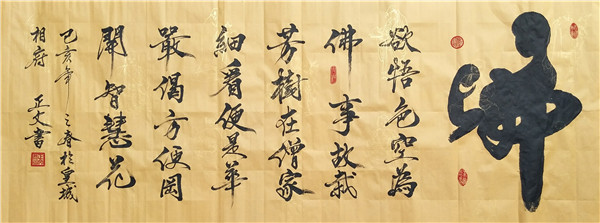 禅
欲悟色空为
佛事故栽
芳樹在僧家
細看便是華
嚴偈方便開
開智慧花
己亥年之春於皇城
相府 正文書